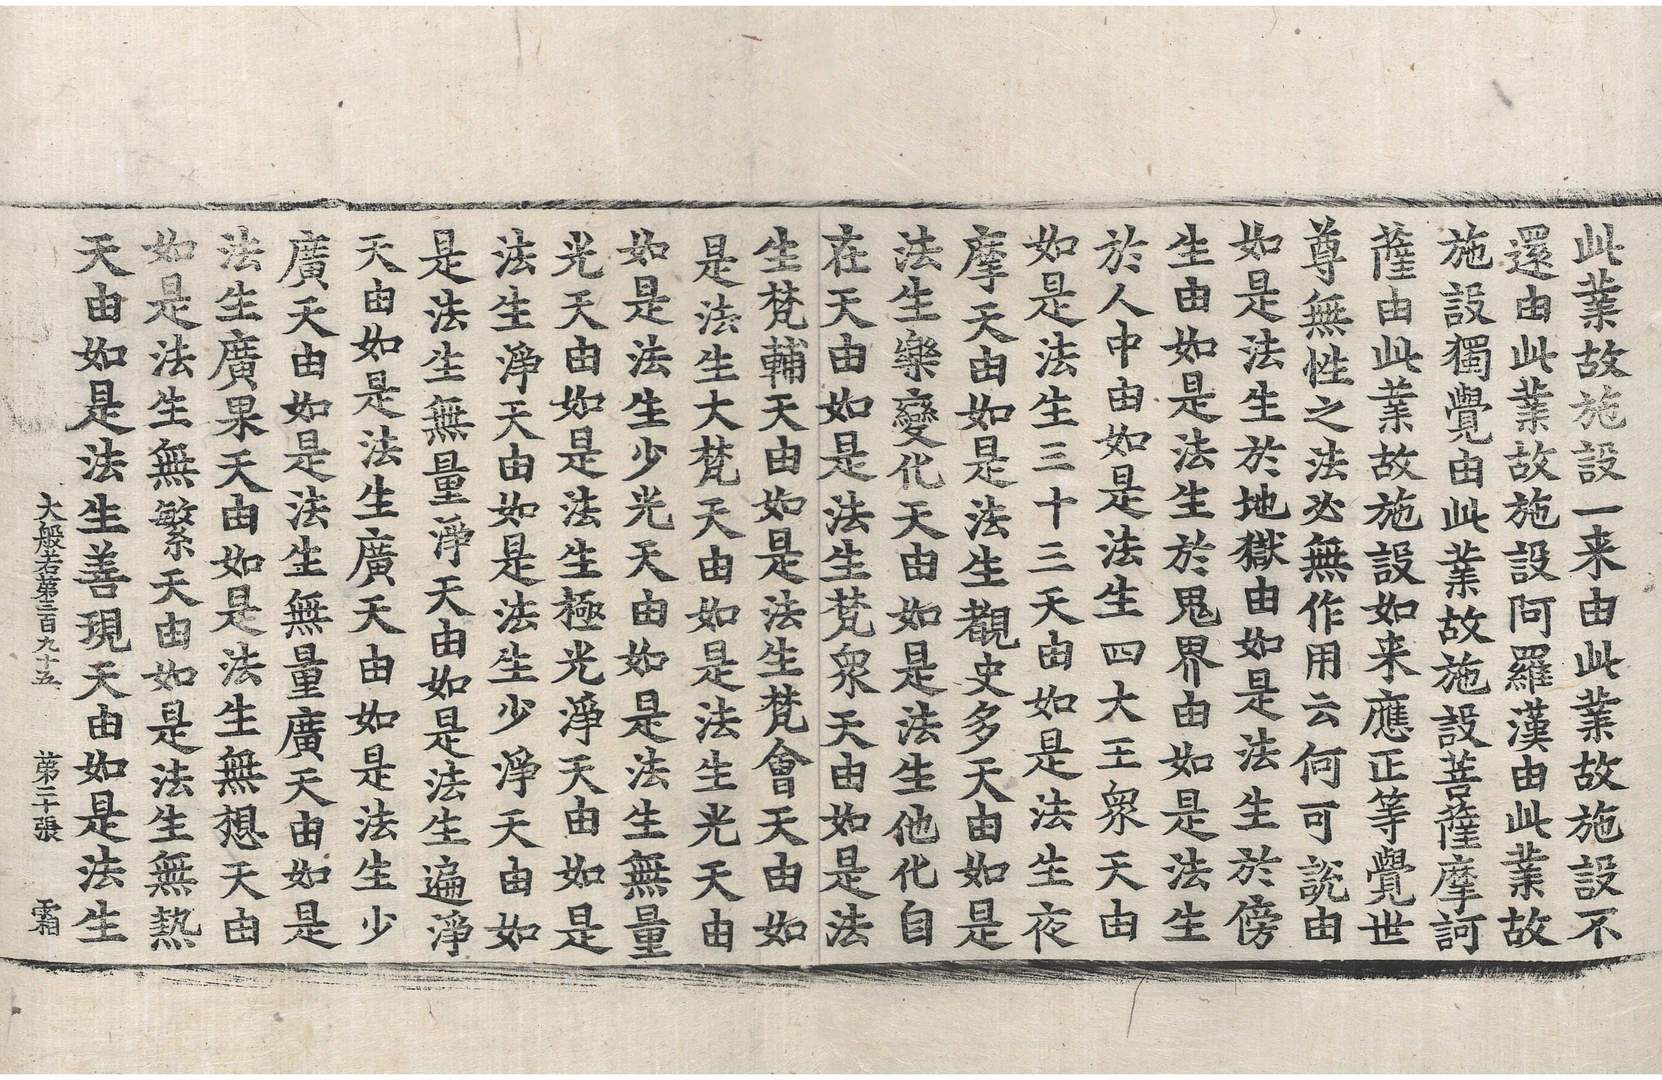 此業故施設一来由此業故施設不
還由此業故施設阿羅漢由此業故
施設獨覺由此業故施設菩薩摩訶
薩由此業故施設如来應正等覺世
尊無性之法必無作用云何可說由
如是法生於地獄由如是法生於傍
生由如是法生於鬼界由如是法生
於人中由如是法生四大王衆天由
如是法生三十三天由如是法生夜
摩天由如是法生覩史多天由如是
法生樂變化天由如是法生他化自
在天由如是法生梵衆天由如是法
生梵輔天由如是法生梵會天由如
是法生大梵天由如是法生光天由
如是法生少光天由如是法生無量
光天由如是法生極光淨天由如是
法生淨天由如是法生少淨天由如
是法生無量淨天由如是法生遍淨
天由如是法生廣天由如是法生少
廣天由如是法生無量廣天由如是
法生廣果天由如是法生無想天由
如是法生無繁天由如是法生無熱
天由如是法生善現天由如是法生
大般若第三百九十五 第二十張 霜